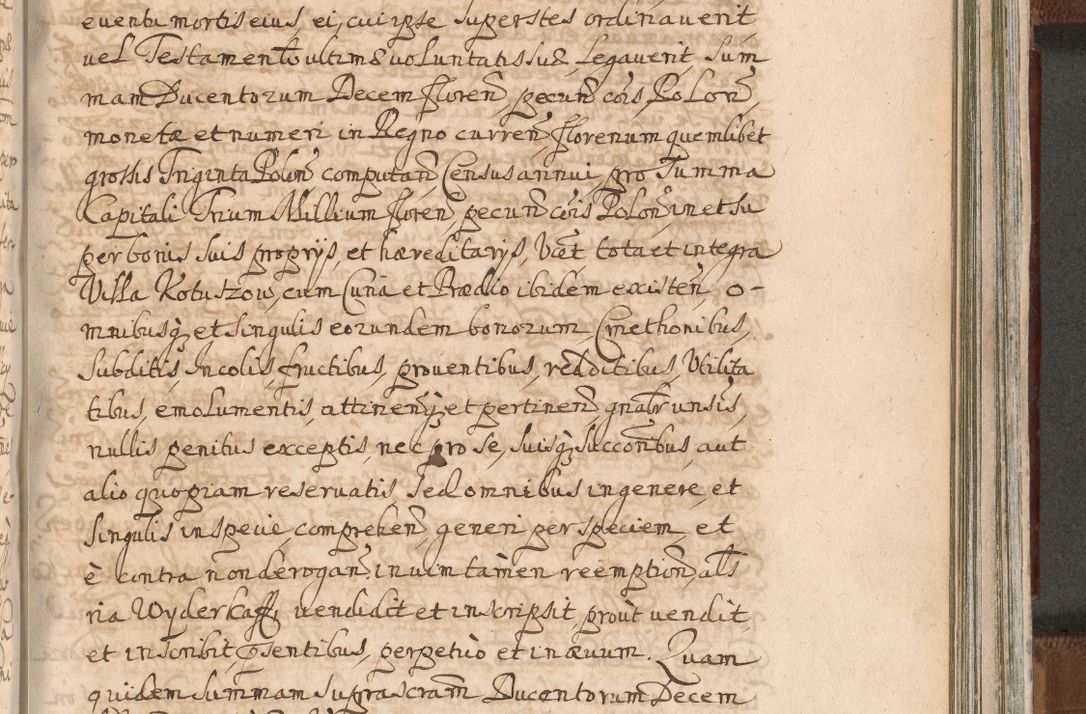 eventu mortis eius, ei, cui ipse superstes ordinaverit
vel Testamento ultimæ voluntatis suæ, Legaverit, Sum
mam Ducentorum Decem floren̄, pecun̄ cōis Polon̄,
monetæ et numeri in Regno curren̄, florenum quemlibet
grossis Triginta Polon̄ computan̄, Census annui, pro Summa
Capitali Trium Millium floren̄, pecun̄ cōis Polon̄ in et su
per bonis suis proprijs, et hæreditarijs, Vc̄t tota et integra
Villa Kotuszow, cum Curia et Prædio ibidem existen̄, o-
mnibusq₃ et singulis eorundem bonorum, Cmethonibus,
Subditis, Incolis, fructibus, proventibus, redditibus, Utilita
tibus, emolumentis, attinen̄ q₃ et pertinen̄ gn̄alr̄ unsis,
nullis penitus exceptis, nec pro se, suisq₃ succor̄ibus, aut
alio quopiam reservatis, sed omnibus in genere, et
singulis in specie, comprehen̄, generi per speciem, et
è contra non derogan̄, in vim tamen reemption̄, als
ria Wyderkaff, vendidit et inscripsit, prout vendit,
et inscribit, pn̄sentibus, perpetuo et in ævum. Quam
quidem summam suprascram̄ Ducentorum Decem